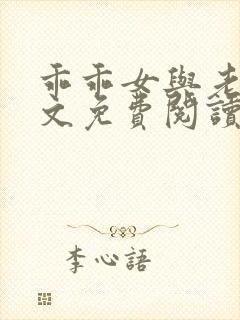 乖乖女與老
文免費閱讀
李心語